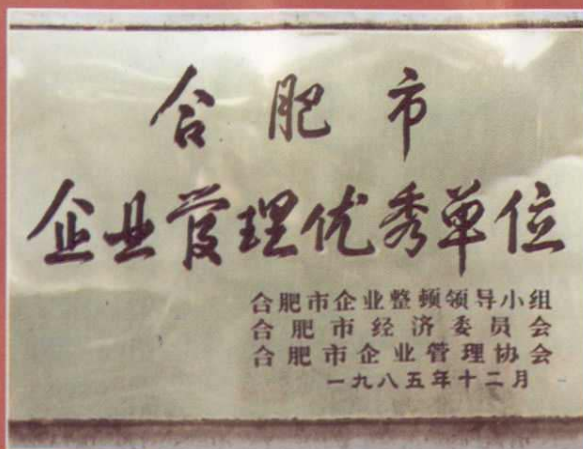 合肥市
企业管理优秀单位
合肥市企业整顿领导小组
合肥市经济委员会
合肥市企业管理协会
一九八五年十二月